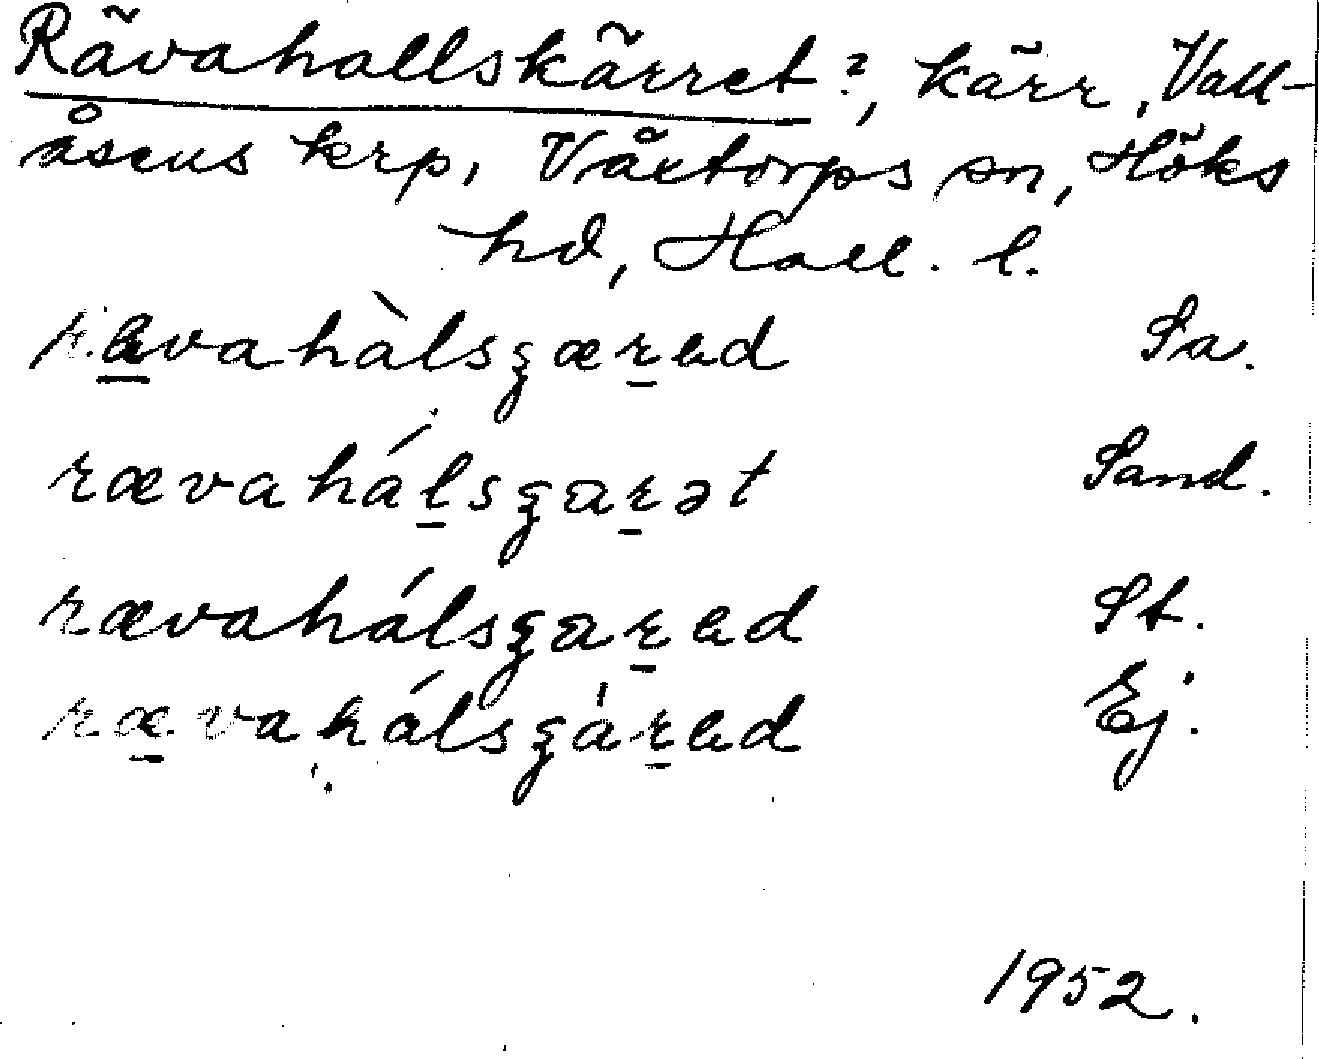 Rävahallskärret?, kärr, Vall-
åsens krp, Våxtorps sn, Höks
hd, Hall. l.
rævahàlsʒæṟad Sa.
rævaháḻsʒaṟət Sand.
rævahálsʒaṟad St.
ræ̱vahálsʒàṟad Ej.
1952.